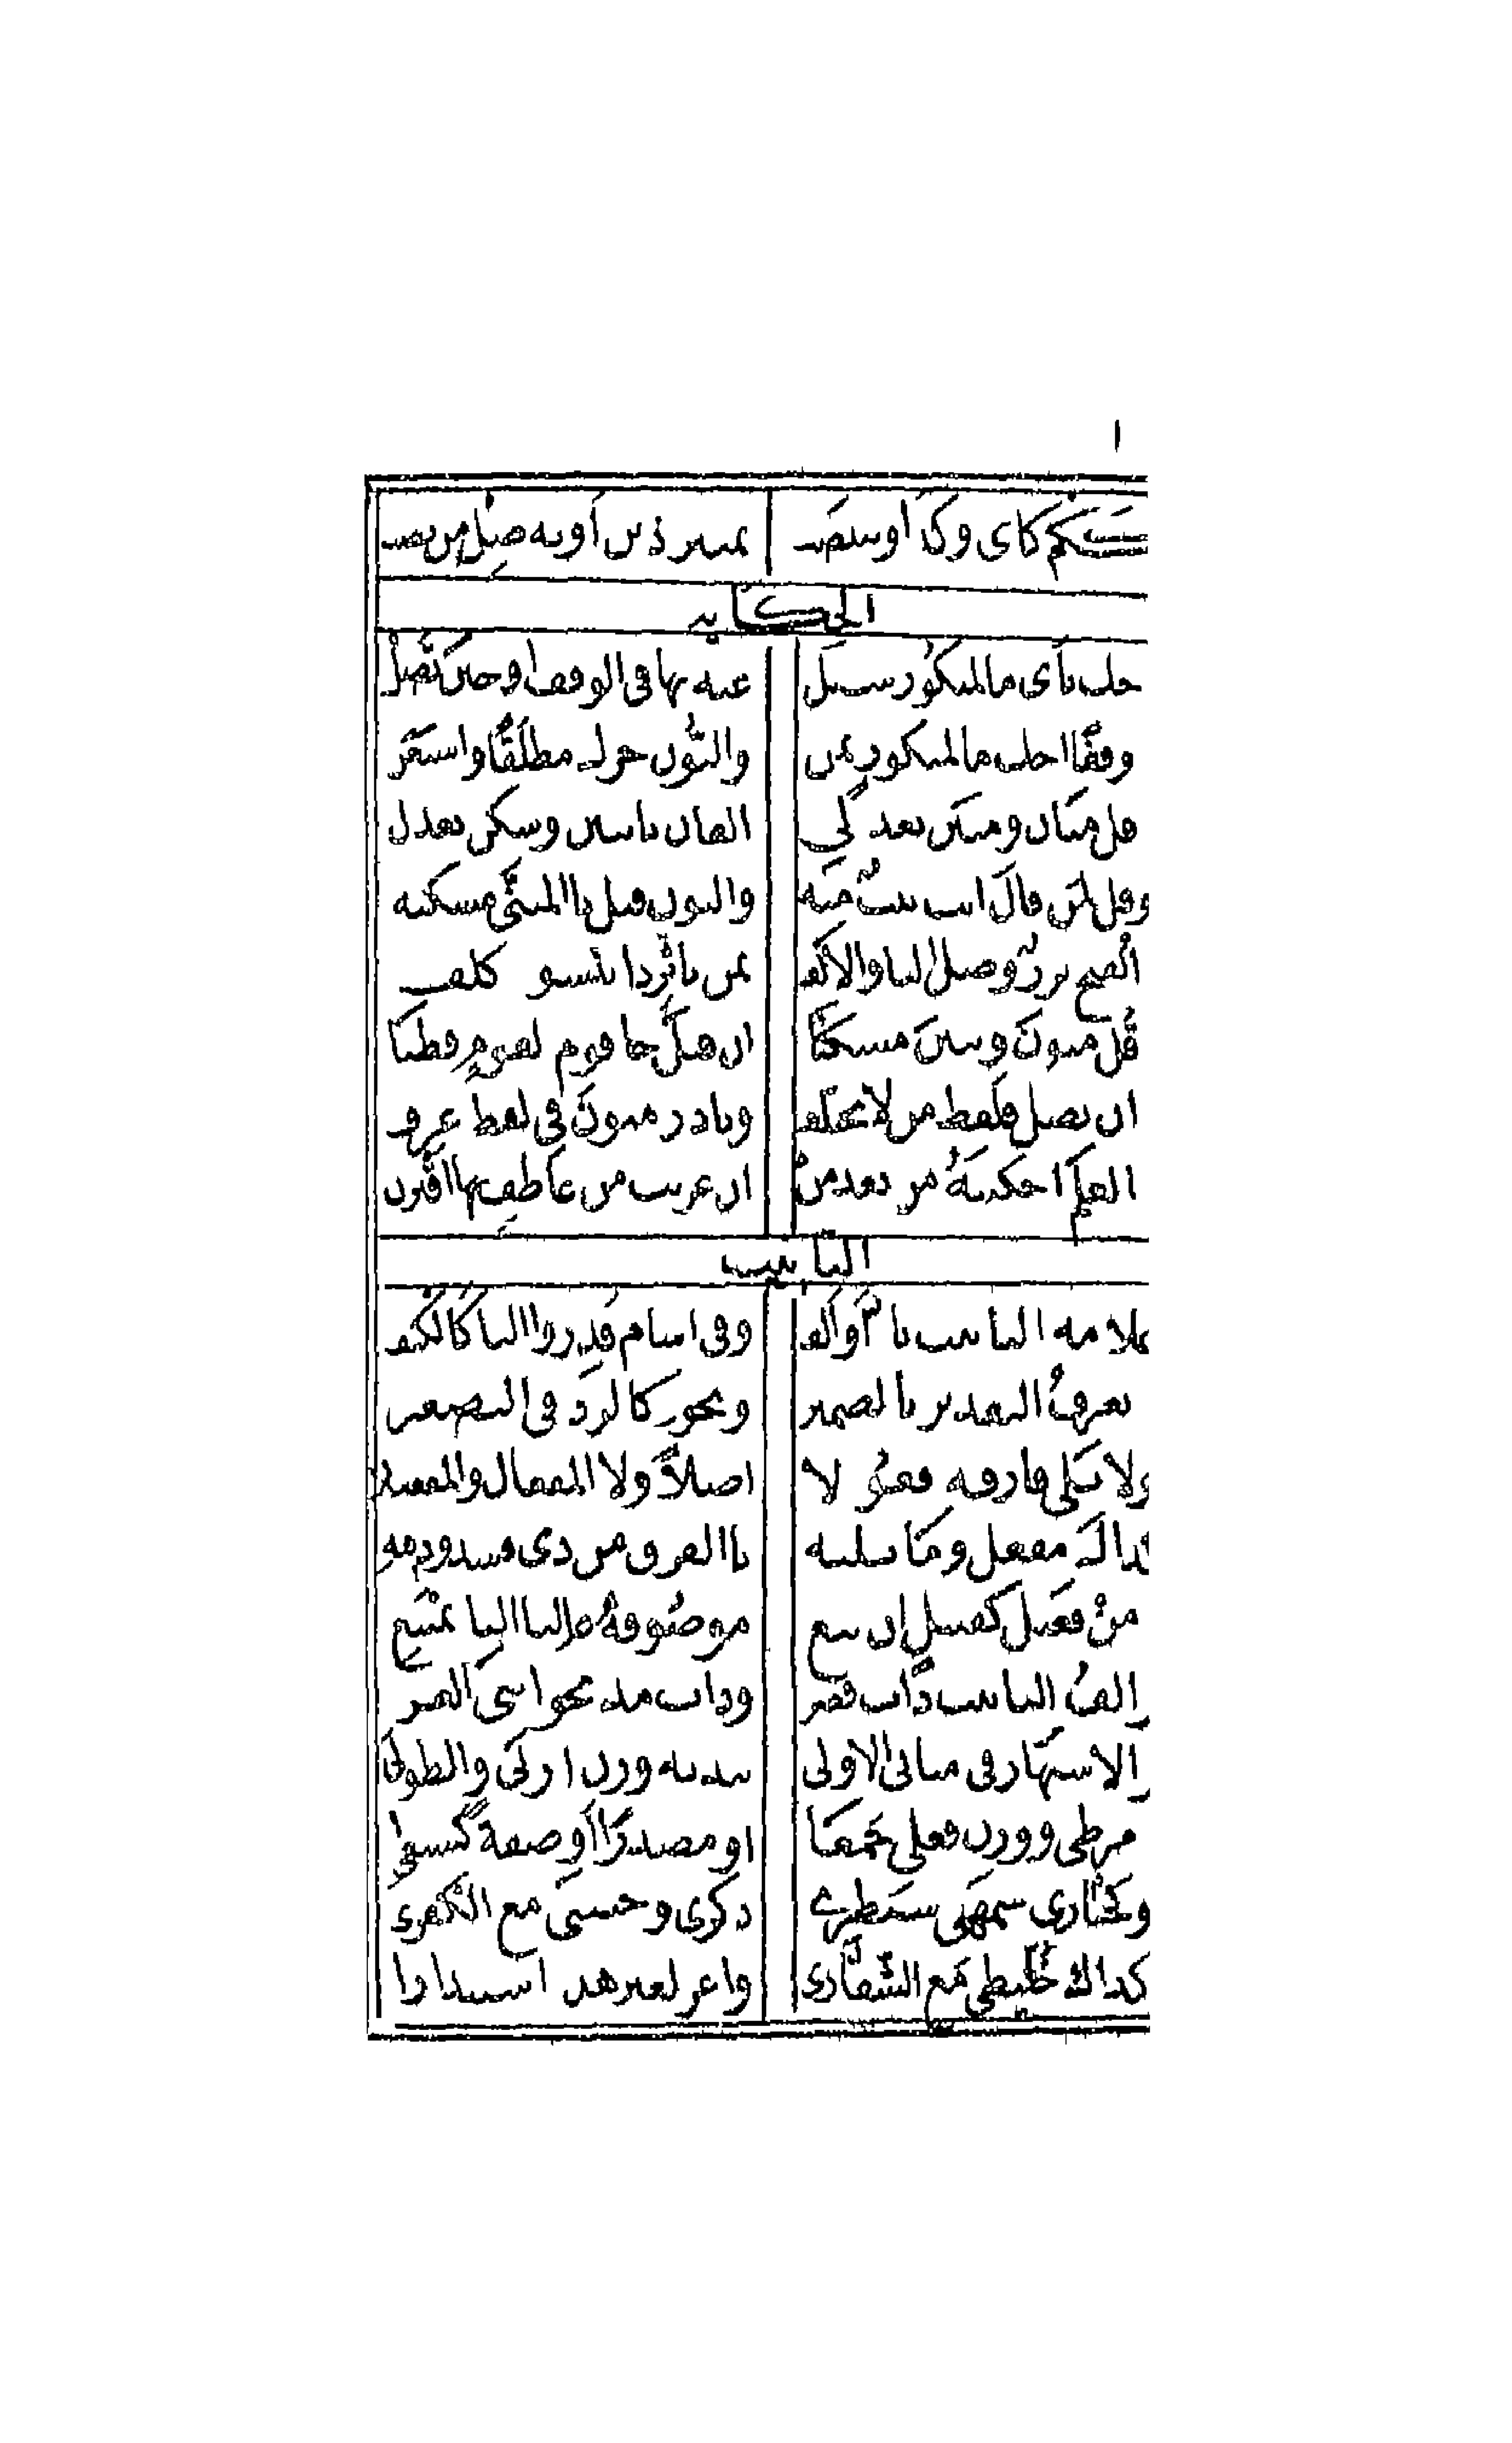 ككم كاي وكذا وينتصب | تمييز ذين أو به صل من تصب
الحكاية
احك بأي ما لمنكور سئل | عنه بها في الوقف أو حين تصل
ووقفا احك ما لمنكور بمن | والنون حرك مطلقا واشبعن
وقل منان ومنين بعد لي | إلفان بابنين وسكن تعدل
وقل لمن قال أتت بنت منه | والنون قبل تا المثنى مسكنه
والفتح نزر وصل التا والألف | بمن بإثر ذا بنسوة كلف
وقل منون ومنين مسكنا | إن قيل جا قوم لقوم فطنا
وإن تصل فلفظ من لا يختلف | ونادر منون في نظم عرف
والعلم احكينه من بعد من | إن عريت من عاطف بها اقترن
التأنيث
علامة التأنيث تاء أو ألف | وفي أسام قدروا التا كالكتف
ويعرف التقدير بالضمير | ونحوه كالرد في التصغير
ولا تلي فارقة فعولا | أصلا ولا المفعال والمفعيلا
كذاك مفعل وما تليه | تا الفرق من ذي فشذوذ فيه
ومن فعيل كقتيل إن تبع | موصوفه غالبا التا تمتنع
وألف التأنيث ذات قصر | وذات مد نحو أنثى الغر
والاشتهار في مباني الأولى | يبديه وزن أربى والطولى
ومرطى ووزن فعلى جمعا | أو مصدرا أو صفة كشبعى
وكحبارى سمهى سبطرى | ذكرى وحثيثى مع الكفرى
كذاك خليطى مع الشقارى | واعز لغير هذه استندارا